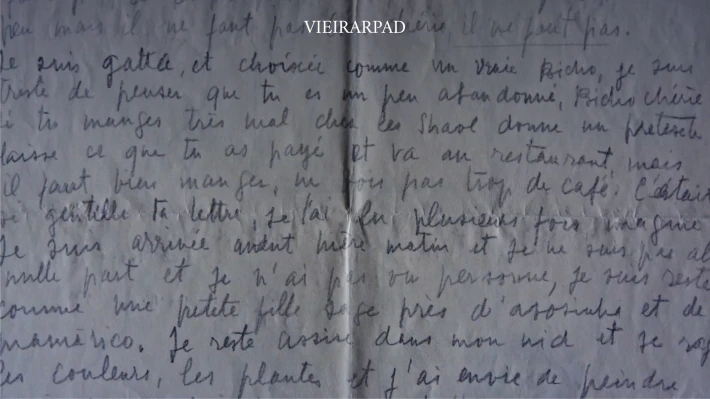 VIEIRARPAD
peu mais il ne faut pas chérie, il ne faut pas.
Je suis gattée, et choisiée comme un vraie Bicho, je suis
triste de penser que tu es un peu abandonné, Bicho chérie
si tu manges très mal chez les donne un pretexte
laisse ce que tu as payé et va au restaurant, mais
il faut bien manger, ne bois pas trop de café. C'était
si gentille ta lettre, je l'ai lu plusieurs fois imagine
Je suis arrivée avant hière matin et je ne suis pas al
nulle part et je n'ai pas vu personne, je suis reste
comme une petite fille sage près d'avosinha et de
mamàrico. Je reste assise dans mon nid et je
les couleurs, les plantes et j'ai envie de peindre